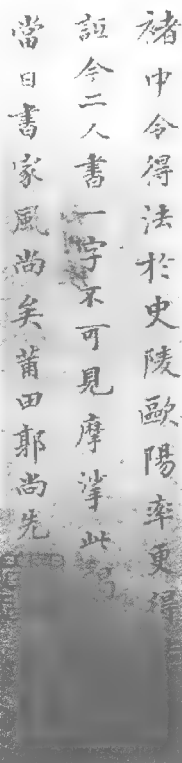 褚中令得法於史陵歐陽率更得
詎今二人書一字不可見摩挲此
當日書家風尚矣莆田郭尚先